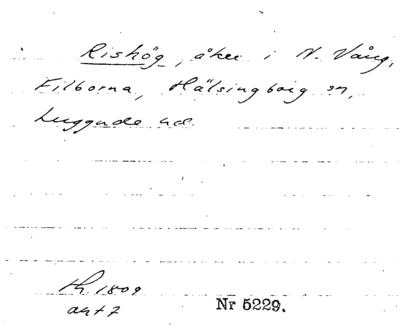 Rishög, åker i N. Vång,
Filborna, Hälsingborg sn,
Luggude hd.
1809
akt 7
Nr 5229.